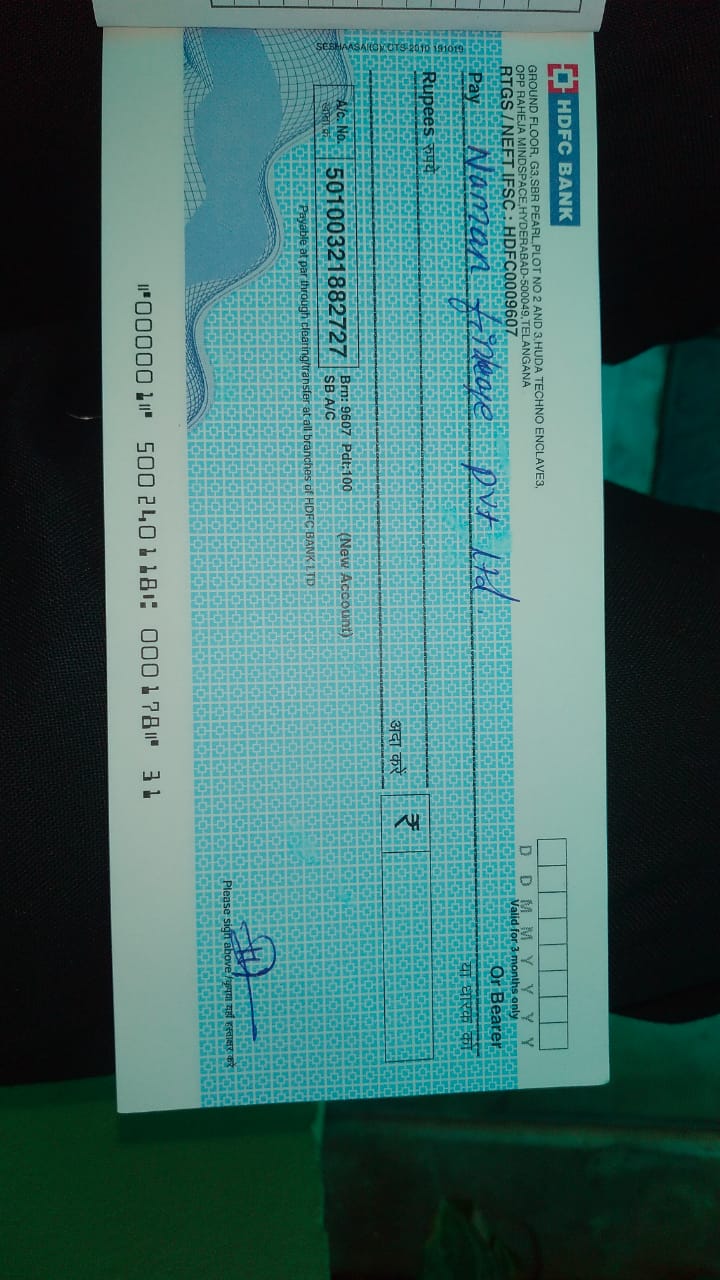 SESHAASAI(C)/ CTS-2010 191019
HDFC BANK
GROUND FLOOR, G3,SBR PEARL,PLOT NO 2 AND 3,HUDA TECHNO ENCLAVE3,
OPP RAHEJA MINDSPACE,HYDERABAD-500049,TELANGANA
RTGS / NEFT IFSC : HDFC0009607
D D M M Y Y Y Y
Valid for 3 months only
Pay Naman pvt Ltd.
Or Bearer
या धारक को
Rupees रुपये
अदा करें ₹
A/c. No. 50100321882727
Brn: 9607 Pdt:100 (New Account)
SB A/C
Payable at par through clearing/transfer at all branches of HDFC BANK LTD
Please sign above / कृपया यहाँ हस्ताक्षर करें
⑈000001⑈ 500240118⑆ 000178⑈ 31